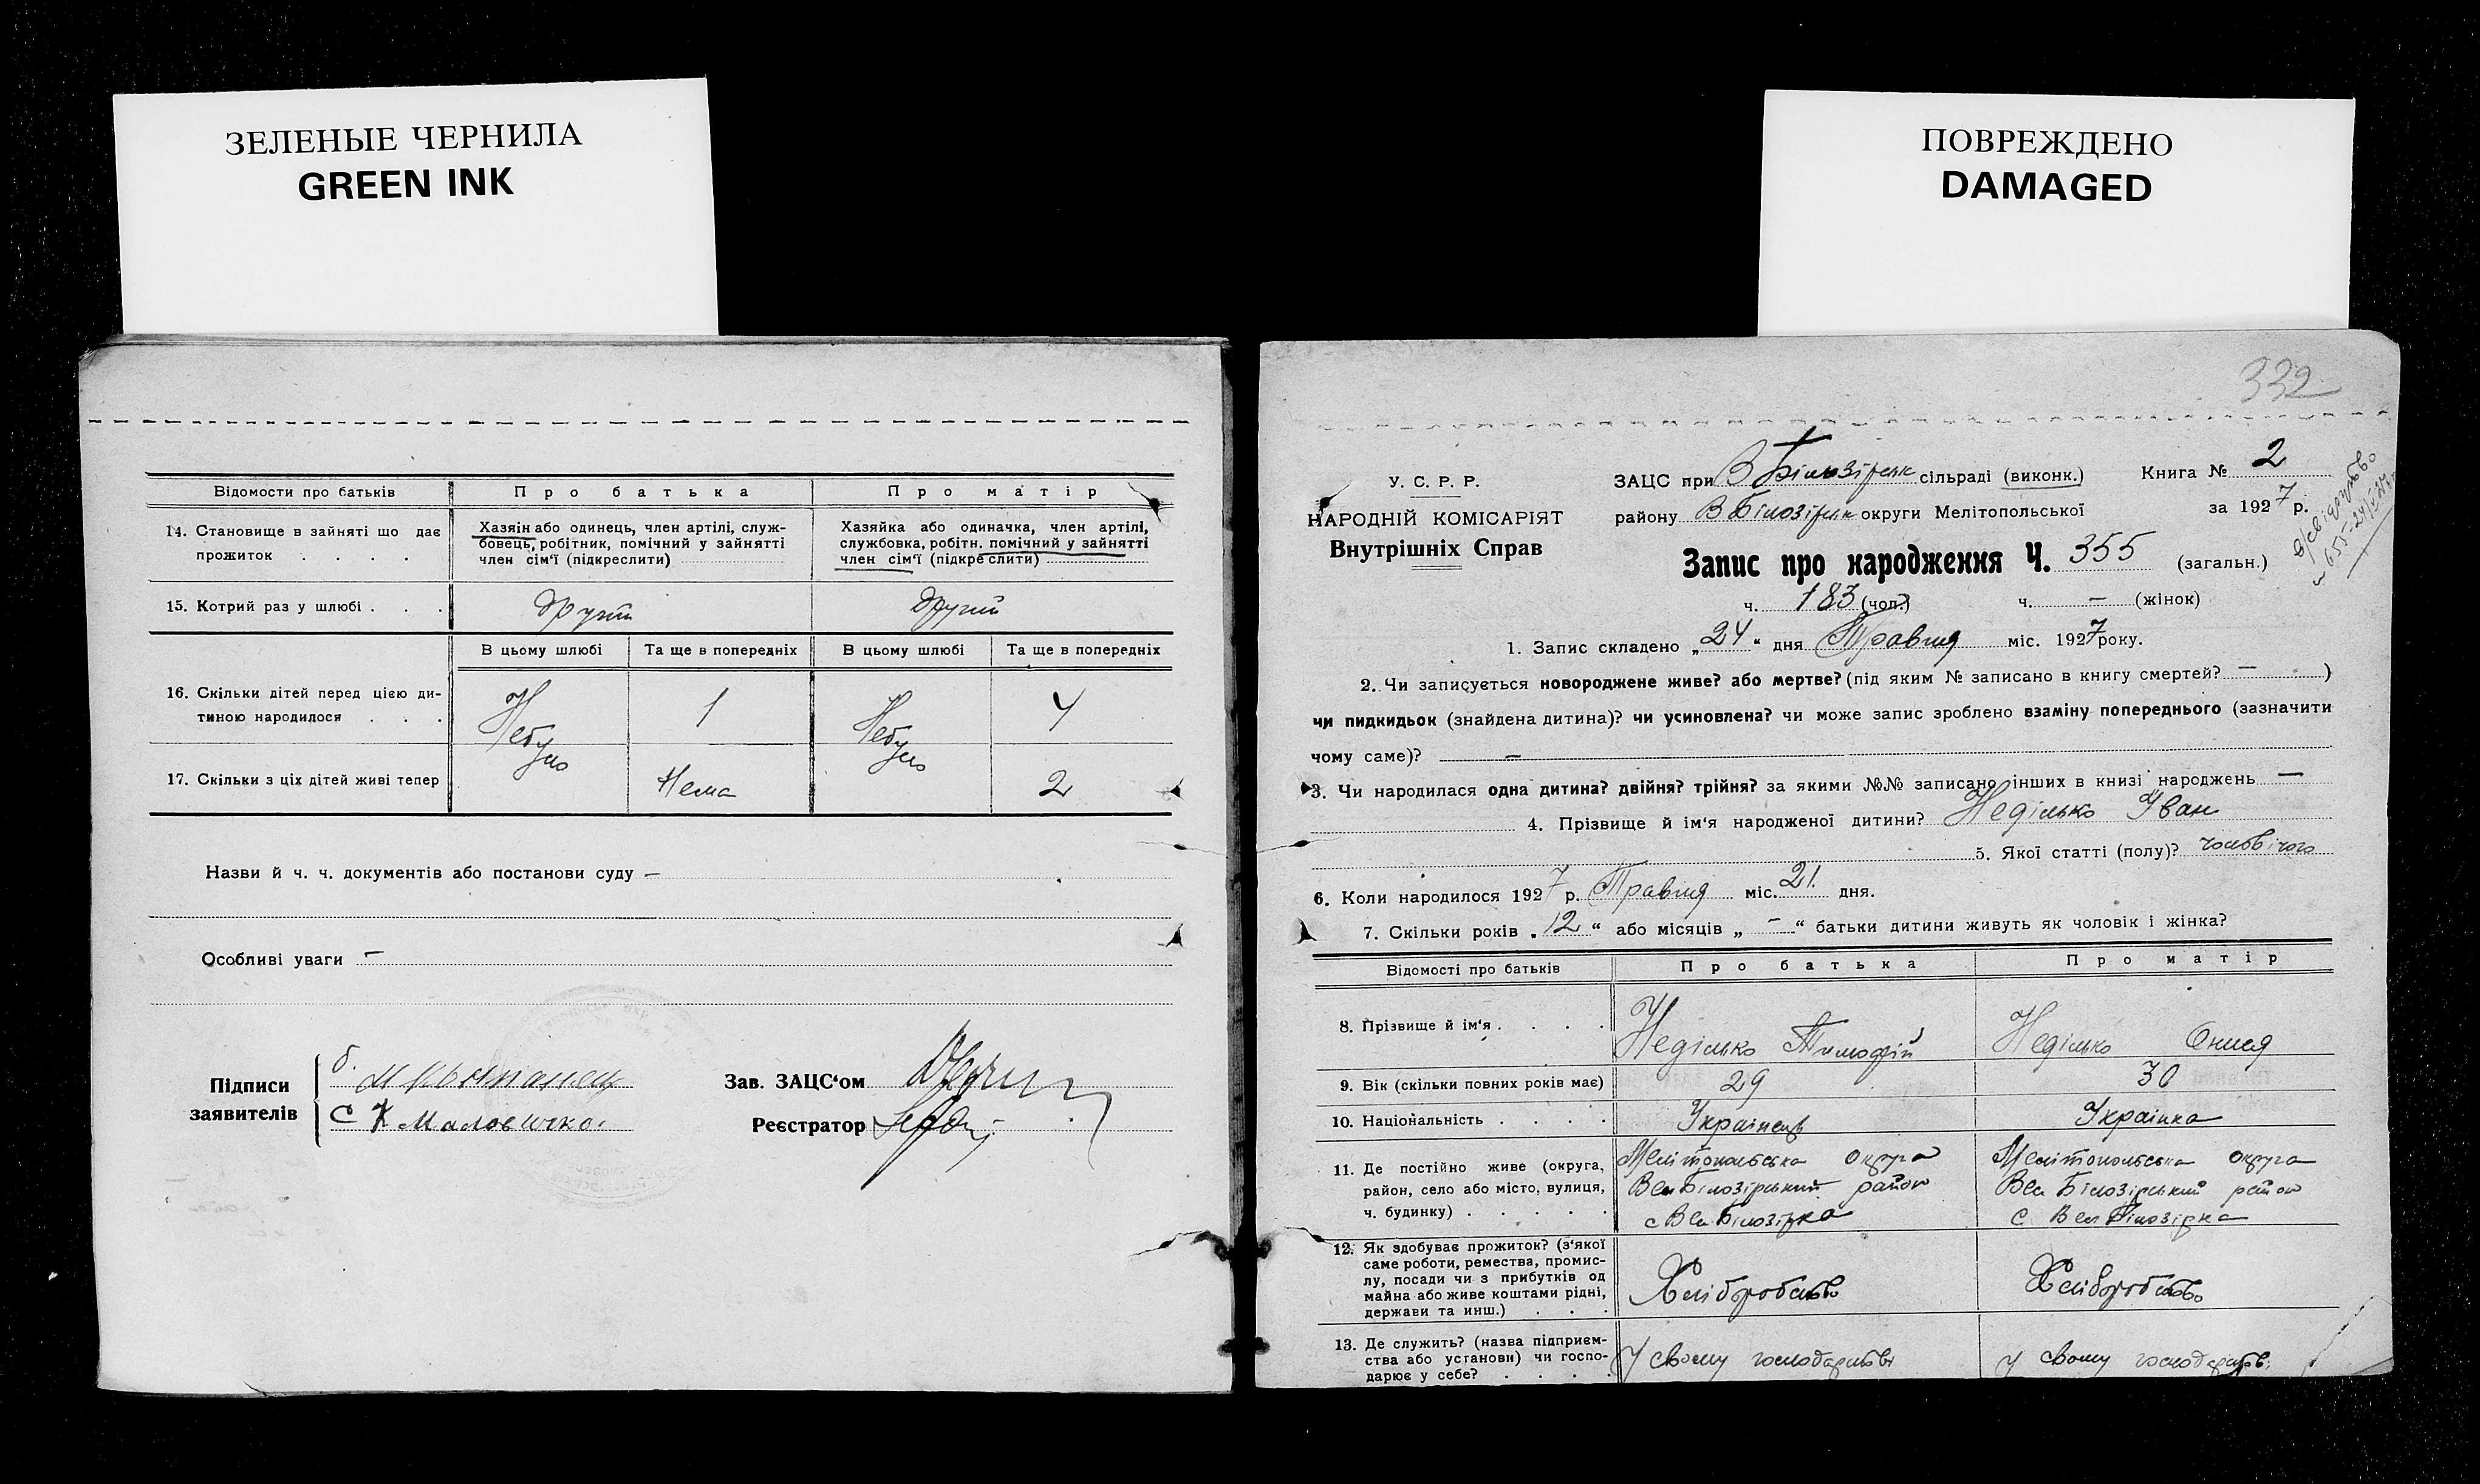 ЗЕЛЕНЫЕ ЧЕРНИЛА
GREEN INK
ПОВРЕЖДЕНО
DAMAGED
Відомости про батьків Про батька Про матір
14. Становище в зайняті що дає прожиток . . . .
Хазяін або одинець, член артілі, служ-
бовець, робітник, помічний у зайнятті
член сім'ї (підкреслити)
Хазяйка або одиначка, член артілі,
службовка, робітн. помічний у зайнятті
член сім'ї (підкреслити)
15. Котрий раз у шлюбі . . . другий другий
В цьому шлюбі Та ще в попередніх В цьому шлюбі Та ще в попередніх
16. Скільки дітей перед цією ди-
тиною народилося . . . Небуло 1 Небуло 4
17. Скільки з ціх дітей живі тепер Нема 2
Назви й ч. ч. документів або постанови суду —
Особливі уваги —
Підписи заявителів
б.
С К Маловичко.
Зав. ЗАЦС'ом
Реєстратор
332
У. С. Р. Р.
НАРОДНІЙ КОМІСАРІЯТ
Внутрішніх Справ
ЗАЦС при В Білозірськ сільраді (виконк.) Книга № 2
району В Білозірськ округи Мелітопольської за 1927 р.
Запис про народження Ч. 355 (загальн.)
ч. 183 (чол.) ч. — (жінок)
1. Запис складено „24" дня Травня міс. 1927 року.
2. Чи записується новороджене живе? або мертве? (під яким № записано в книгу смертей? — )
чи пидкидьок (знайдена дитина)? чи усиновлена? чи може запис зроблено взаміну попереднього (зазначити
чому саме)? —
3. Чи народилася одна дитина? двійня? трійня? за якими №№ записано інших в книзі народжень —
4. Прізвище й ім'я народженої дитини? Неділько Іван
5. Якої статті (полу)? чоловічого
6. Коли народилося 1927 р. Травня міс. 21. дня.
7. Скільки років „12" або місяців „ — " батьки дитини живуть як чоловік і жінка?
Відомості про батьків Про батька Про матір
8. Прізвище й ім'я . . . . Неділько Тимофій Неділько
9. Вік (скільки повних років має) 29 30
10. Національність . . . . Українець Українка
11. Де постійно живе (округа,
район, село або місто, вулиця,
ч. будинку) . . . . .
Мелітопольська округа
Вел Білозірський район
с Вел Білозірка
Мелітопольська округа
Вел Білозірський район
с Вел Білозірка
12. Як здобуває прожиток? (з'якої
саме роботи, ремества, промис-
лу, посади чи з прибутків од
майна або живе коштами рідні,
держави та инш.) . . .
Хліборобство Хліборобство
13. Де служить? (назва підприєм-
ства або установи) чи госпо-
дарює у себе? . . . .
У свому господарстві у свому господарстві